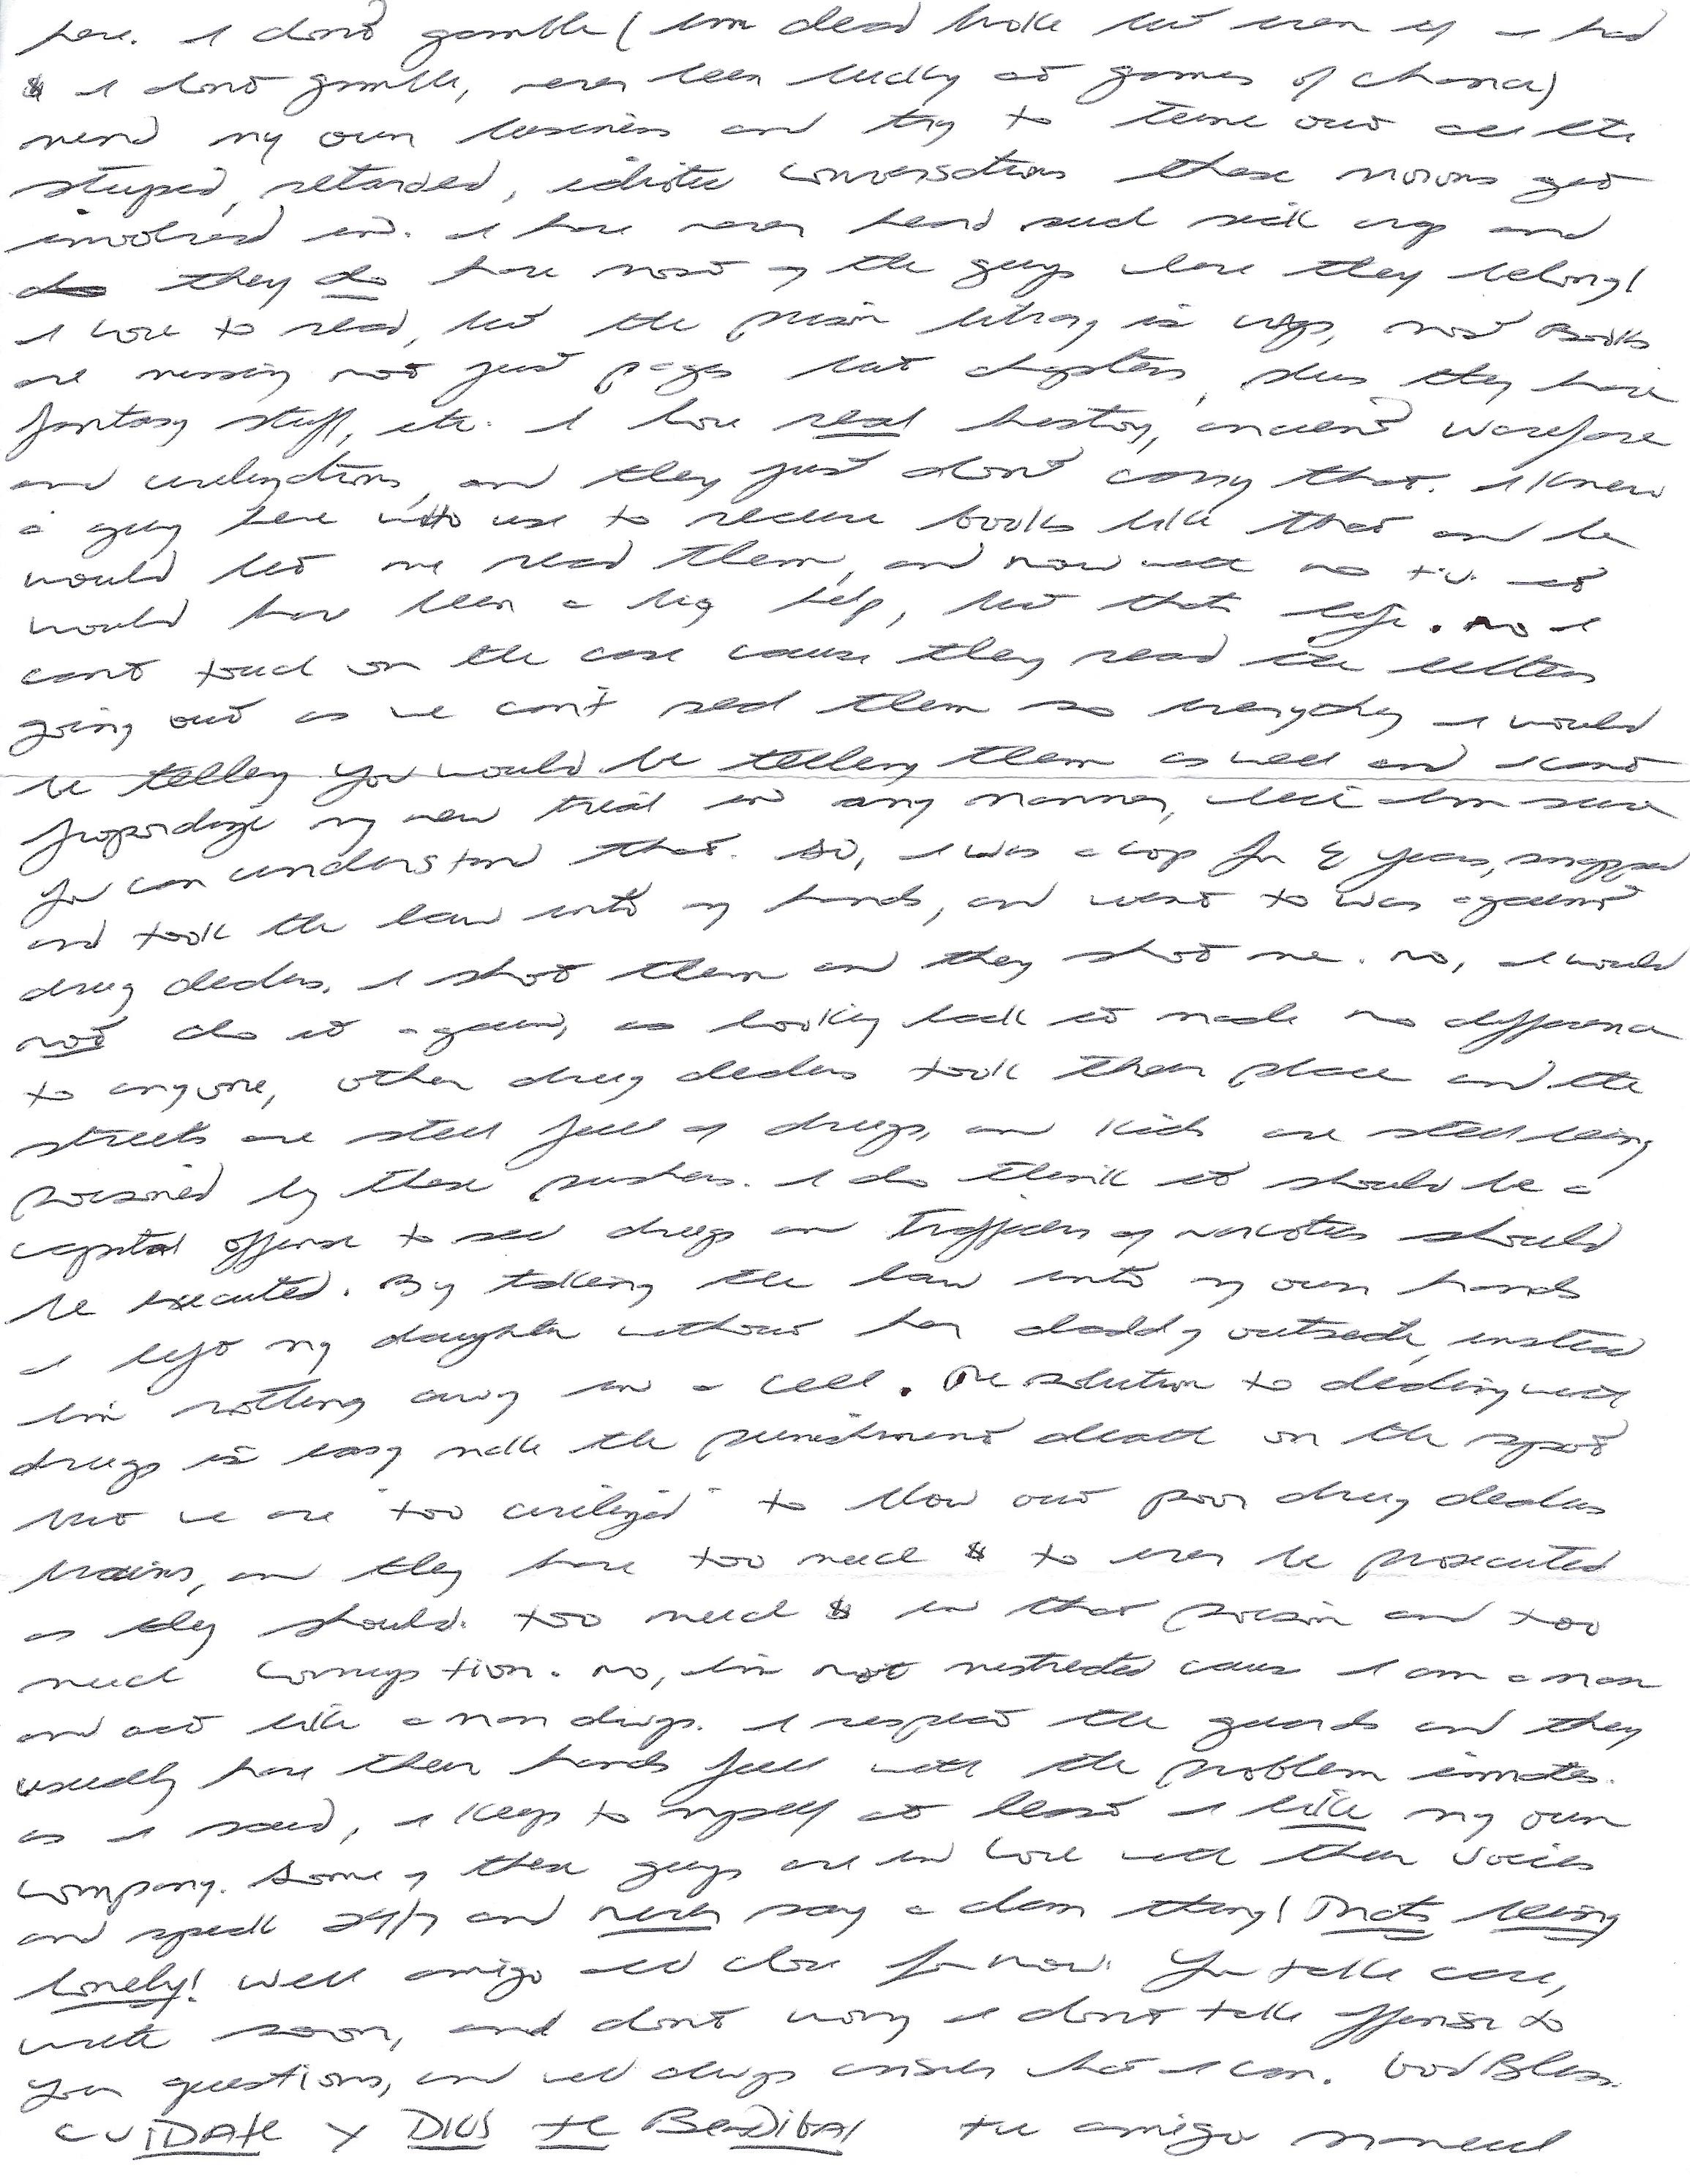 here. I don't gamble (I'm dead broke but even if I had
$ I don't gamble, never been lucky at games of chance)
mind my own business and try to tune out all the
stupid, retarded, idiotic conversations these morons get
involved in. I have never heard such sick crap and
do they do have most of the guys where they belong!
I love to read, but the prison library is crap, most Books
are missing not just pages but chapters, plus they have
fantasy stuff, etc. I love real history, ancient warefare
and civilizations, and they just don't carry that. I knew
a guy here who use to receive books like that and he
would let me read them, and now with no t.v. it
would have been a big help, but thats life. no I
cant touch on the case cause they read the letters
going out as we can't seal them so everything I would
be telling you would be telling them as well and I cant
jeopordize my new trial in any manner, but I'm sure
you can understand that. So, I was a cop for 4 years, snapped
and took the law into my hands, and went to war against
drug dealers. I shot them and they shot me. no, I would
not do it again, as looking back it made no difference
to anyone, other drug dealers took their place and the
streets are still full of drugs, and kids are still being
poisoned by these pushers. I do think it should be a
capital offense to sell drugs and Traffickers of narcotics should
be executed. By taking the law into my own hands
I left my daughter without her daddy outside, instead
I'm rotting away in a cell. The solution to dealing with
drugs is easy make the punishment death on the spot
but we are "too civilized" to blow out poor drug dealers
brains, and they have too much $ to ever be prosecuted
as they should. too much $ in that poison and too
much corruption. no, I'm not restricted cause I am a man
and act like a man always. I respect the guards and they
usually have their hands full with the problem inmates.
as I said, I keep to myself at least I like my own
company. Some of these guys are in love with their voices
and speak 24/7 and never say a damn thing! Thats being
lonely! well amigo I'll close for now. You take care,
write soon, and don't worry I don't take offense to
your questions, and will always answer what I can. God Bless.
CUIDATE Y DIOS te BenDiGA! tu amigo manuel